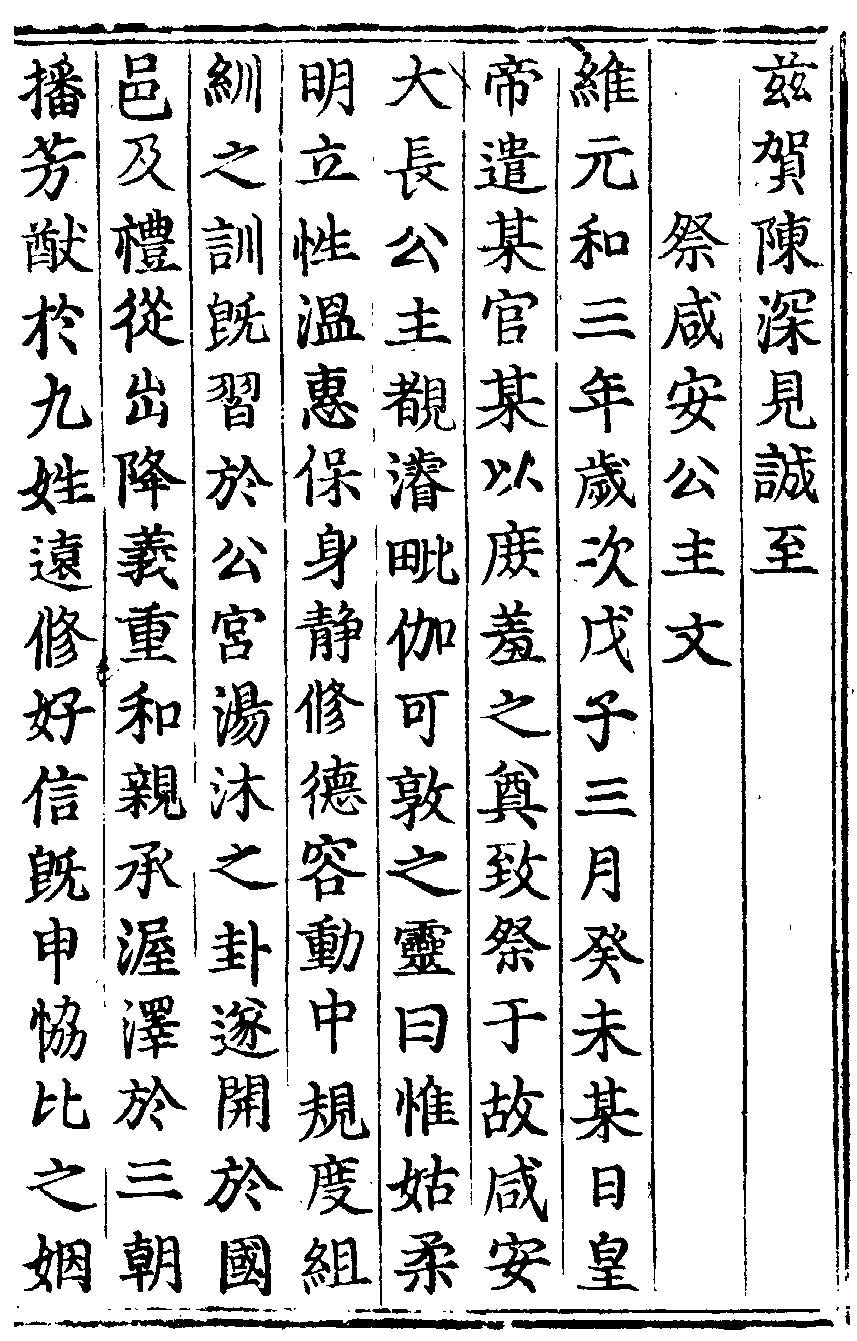 茲賀陳深見誠至
祭咸安公主文
維元和三年歲次戊子三月癸未某日皇
帝遣某官某以庶羞之奠致祭于故咸安
大長公主覩濬毗伽可敦之靈曰惟姑柔
明立性溫惠保身靜修德容動中規度組
紃之訓旣習於公宮湯沐之封遂開於國
邑及禮從出降義重和親承渥澤於三朝
播芳猷於九姓遠修好信旣申恊比之姻